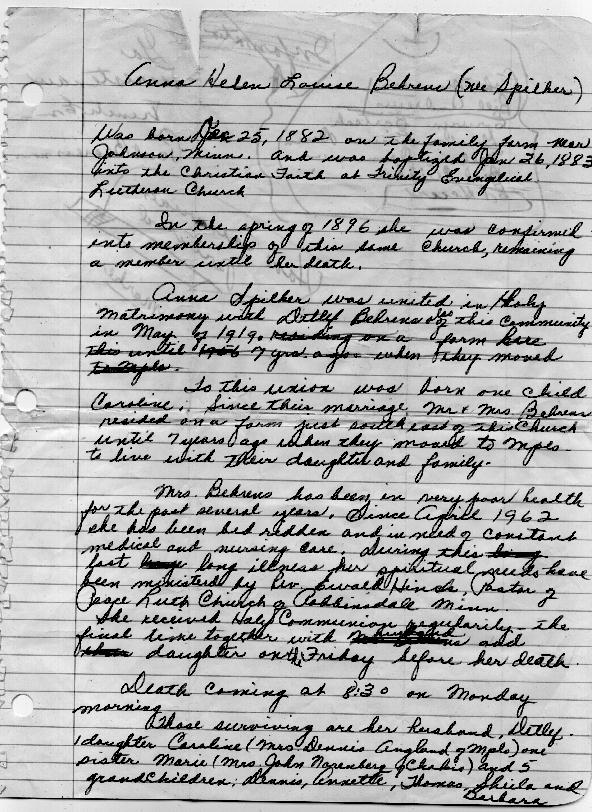 Anna Helen Louise Behrens (nee Spilker)
Was born Dec 25, 1882 on the family farm near
Johnson, Minn. and was baptized Jan 26, 1883
into the Christian Faith at Trinity Evangelical
Lutheran Church
In the spring of 1896 she was confirmed
into membership of this same Church, remaining
a member until her death.
Anna Spilker was united in Holy
Matrimony with Detlef Behrens also of this Community
in May of 1919. residing on a farm here
this until 1956 7 yrs ago when they moved
to Mpls.
To this union was born one child
Caroline. Since their marriage, Mr & Mrs. Behrens
resided on a farm just south east of this Church
until 7 years ago when they moved to Mpls
to live with their daughter and family.
Mrs. Behrens has been in very poor health
for the past several years. Since April 1962
she has been bed ridden and in need of constant
medical and nursing care. During this long
last long illness her spiritual needs have
been ministerd by Rev. Ewald Hinck, Pastor of
Peace Luth Church of Robbinsdale Minn.
She received Holy Communion regularity the
final time together with husband and
daughter on the Friday before her death.
Death coming at 8:30 on Monday
morning
Those surviving are her husband, Detlef.
1 daughter Caroline (Mrs Dennis Angland of Mpls) one
sister Marie (Mrs. John Nazenberg of Chokio) and 5
grandchildren; Dennis, Annette, Thomas, Sheila and
Barbara